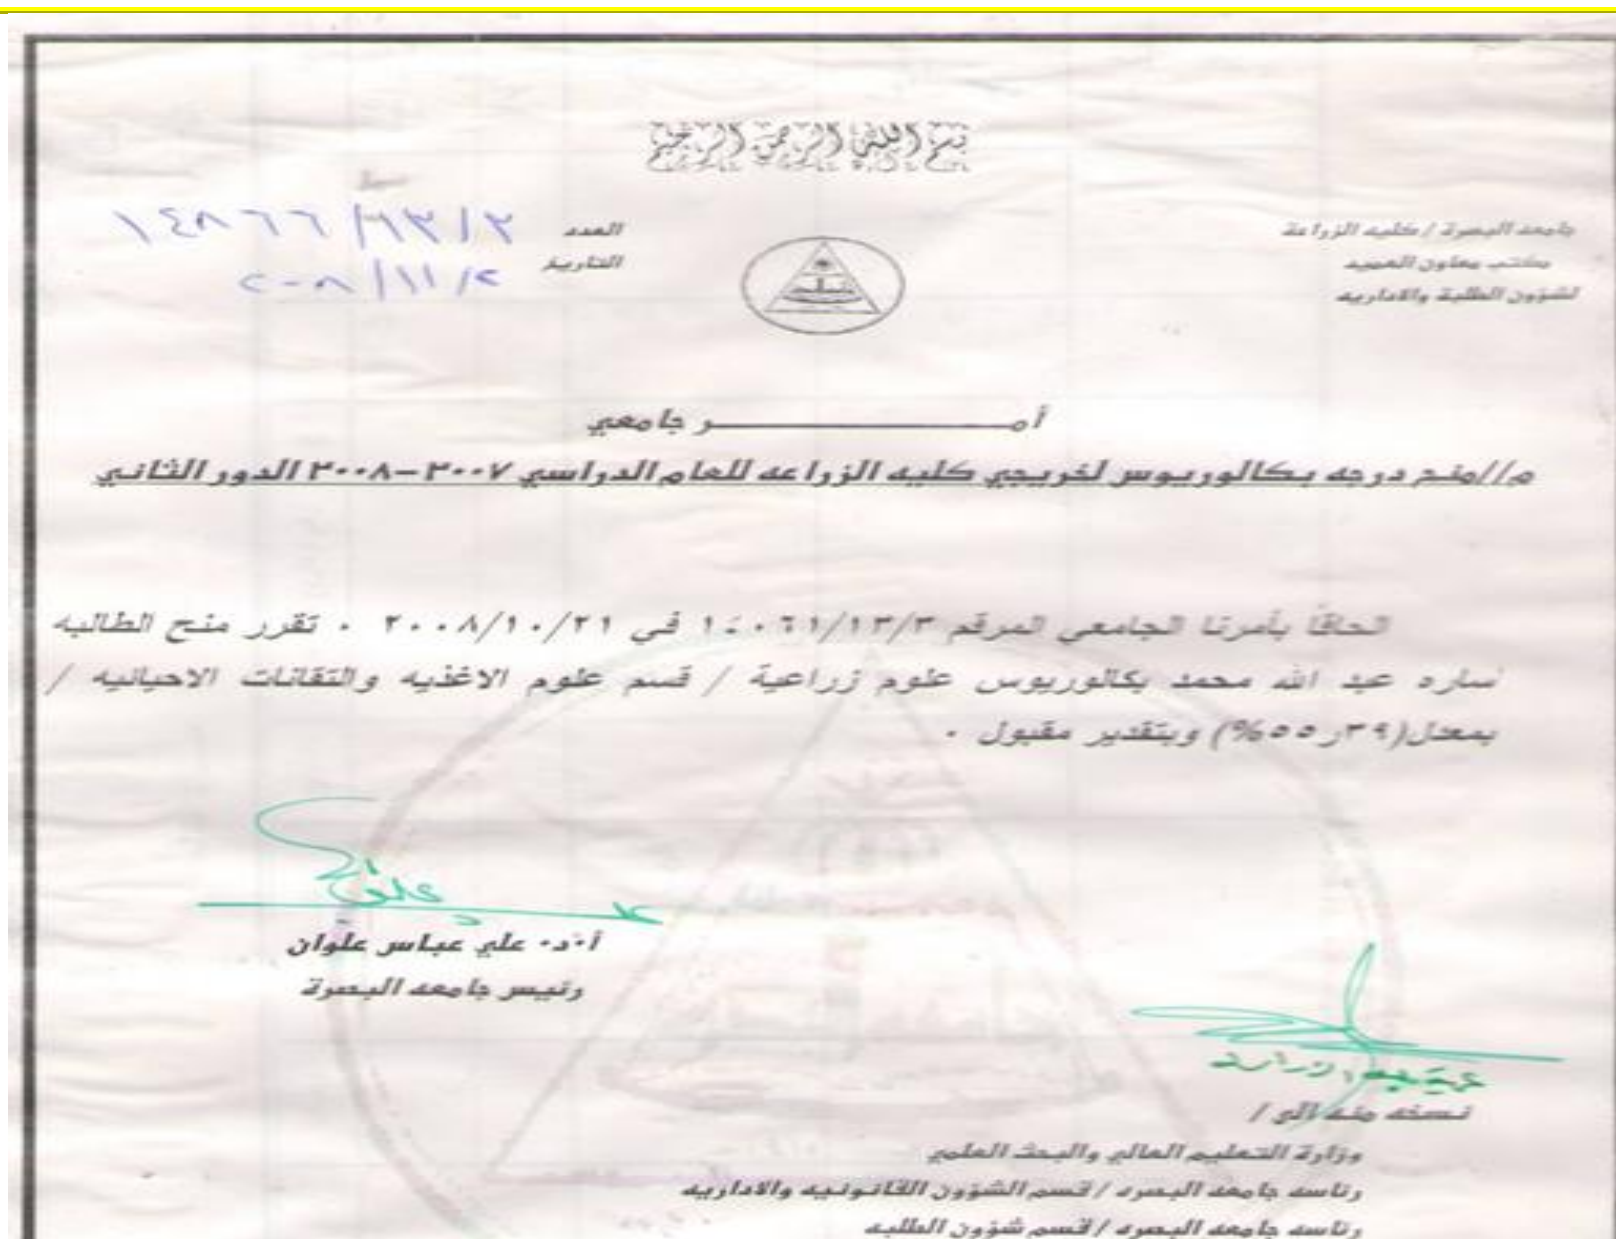 بسم الله الرحمن الرحيم
جامعه البصرة / كليه الزراعة
مكتب معاون العميد
لشؤون الطلبة والاداريه
العدد ١٤٨٦٦/١٣/٣
التاريخ ٢٠٠٨/١١/٢
أمـــــــــــــــــــــــــــــــــر جامعي
م//منح درجه بكالوريوس لخريجي كليه الزراعه للعام الدراسي ٢٠٠٧–٢٠٠٨ الدور الثاني
الحاقاً بأمرنا الجامعي المرقم ١٤٠٦١/١٣/٣ في ٢٠٠٨/١٠/٢١ ٠ تقرر منح الطالبه
ساره عبد الله محمد بكالوريوس علوم زراعية / قسم علوم الاغذيه والتقانات الاحيائيه /
بمعدل(٣٩ر٥٥%) وبتقدير مقبول ٠
أ٠د٠ علي عباس علوان
رئيس جامعه البصرة
نسخه منه الى /
وزارة التعليم العالي والبحث العلمي
رئاسه جامعه البصره / قسم الشؤون القانونيه والاداريه
رئاسه جامعه البصره / قسم شؤون الطلبه